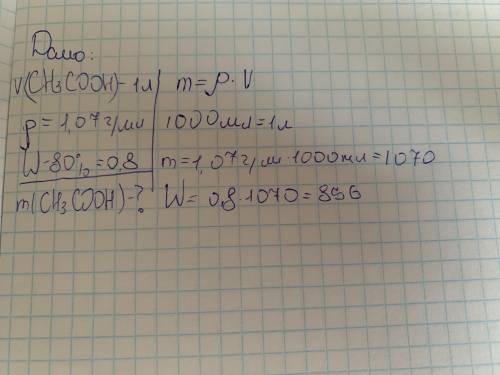 Дано:
V(CH3COOH)-1л
ρ=1,07г/мл
W-80%=0,8
m(CH3COOH)-?
m=ρ·V
1000мл=1л
m=1,07г/мл·1000мл=1070
W=0,8·1070=856